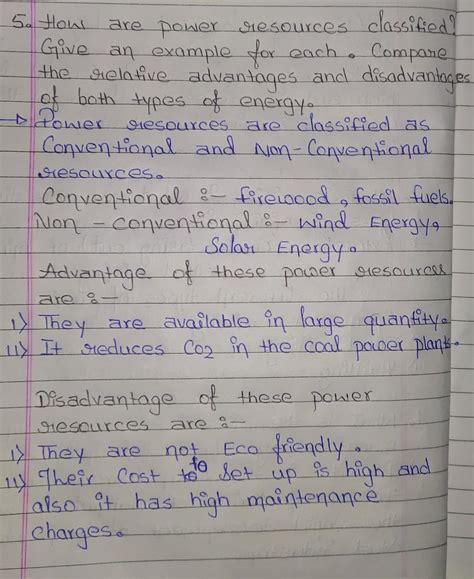 5. How are power resources classified?
Give an example for each. Compare
the relative advantages and disadvantages
of both types of energy.
→ Power resources are classified as
Conventional and Non-Conventional
resources.
Conventional :- firewood, fossil fuels.
Non - conventional :- Wind Energy,
Solar Energy.
Advantage of these power resources
are :-
i) They are available in large quantity.
ii) It reduces CO2 in the coal power plants.
Disadvantage of these power
resources are :-
i) They are not Eco friendly.
ii) Their Cost to to Set up is high and
also it has high maintenance
charges.